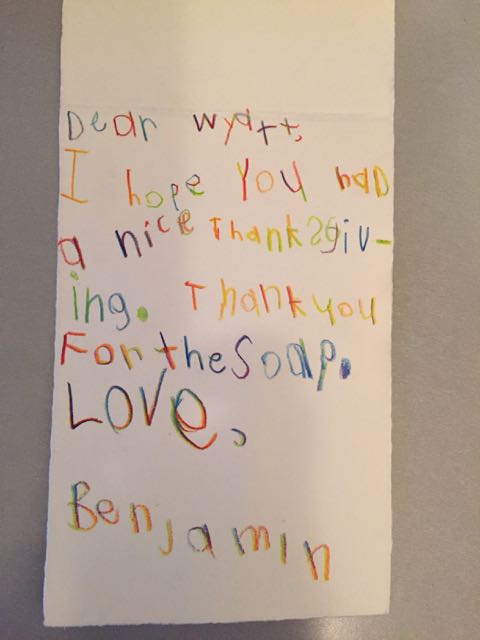 Dear Wyatt,
I hope You haD
a nice Thanksgiv-
ing. Thank you
For the Soap.
LOVe,
Benjamin